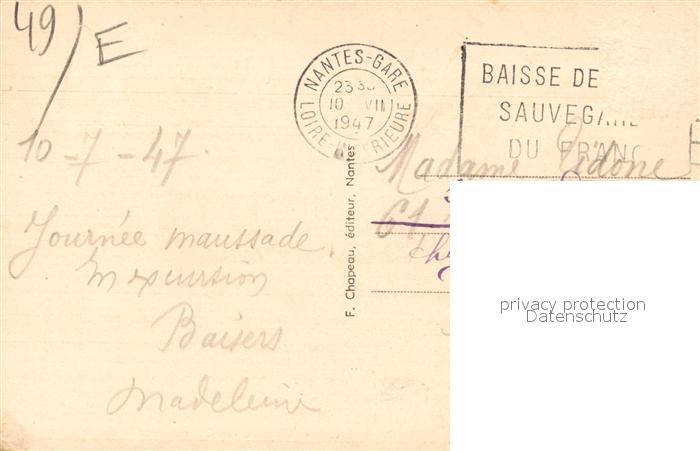 49/E
NANTES-GARE
23
10 VII
1947
LOIRE-INFERIEURE
BAISSE DE
SAUVEGAR
DU FRANC
10-7-47
Journée maussade
excursion
Baisers
Madeleine
F. Chapeau, éditeur, Nantes
Madame
61
privacy protection
Datenschutz